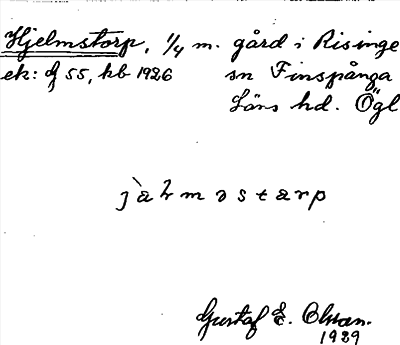 Hjelmstorp, 1/4 m. gård i Risinge
ek: bf 55, kb 1926 sn Finspånga
Läns hd. Ögl
jàlməstarp
Gustaf E. Olsson.
1929